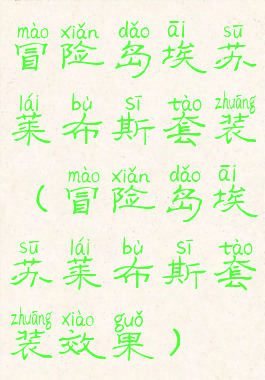 mào xiǎn dǎo āi sū
冒险岛埃苏
lái bù sī tào zhuāng
莱布斯套装
mào xiǎn dǎo āi
（冒险岛埃
sū lái bù sī tào
苏莱布斯套
zhuāng xiào guǒ
装效果）